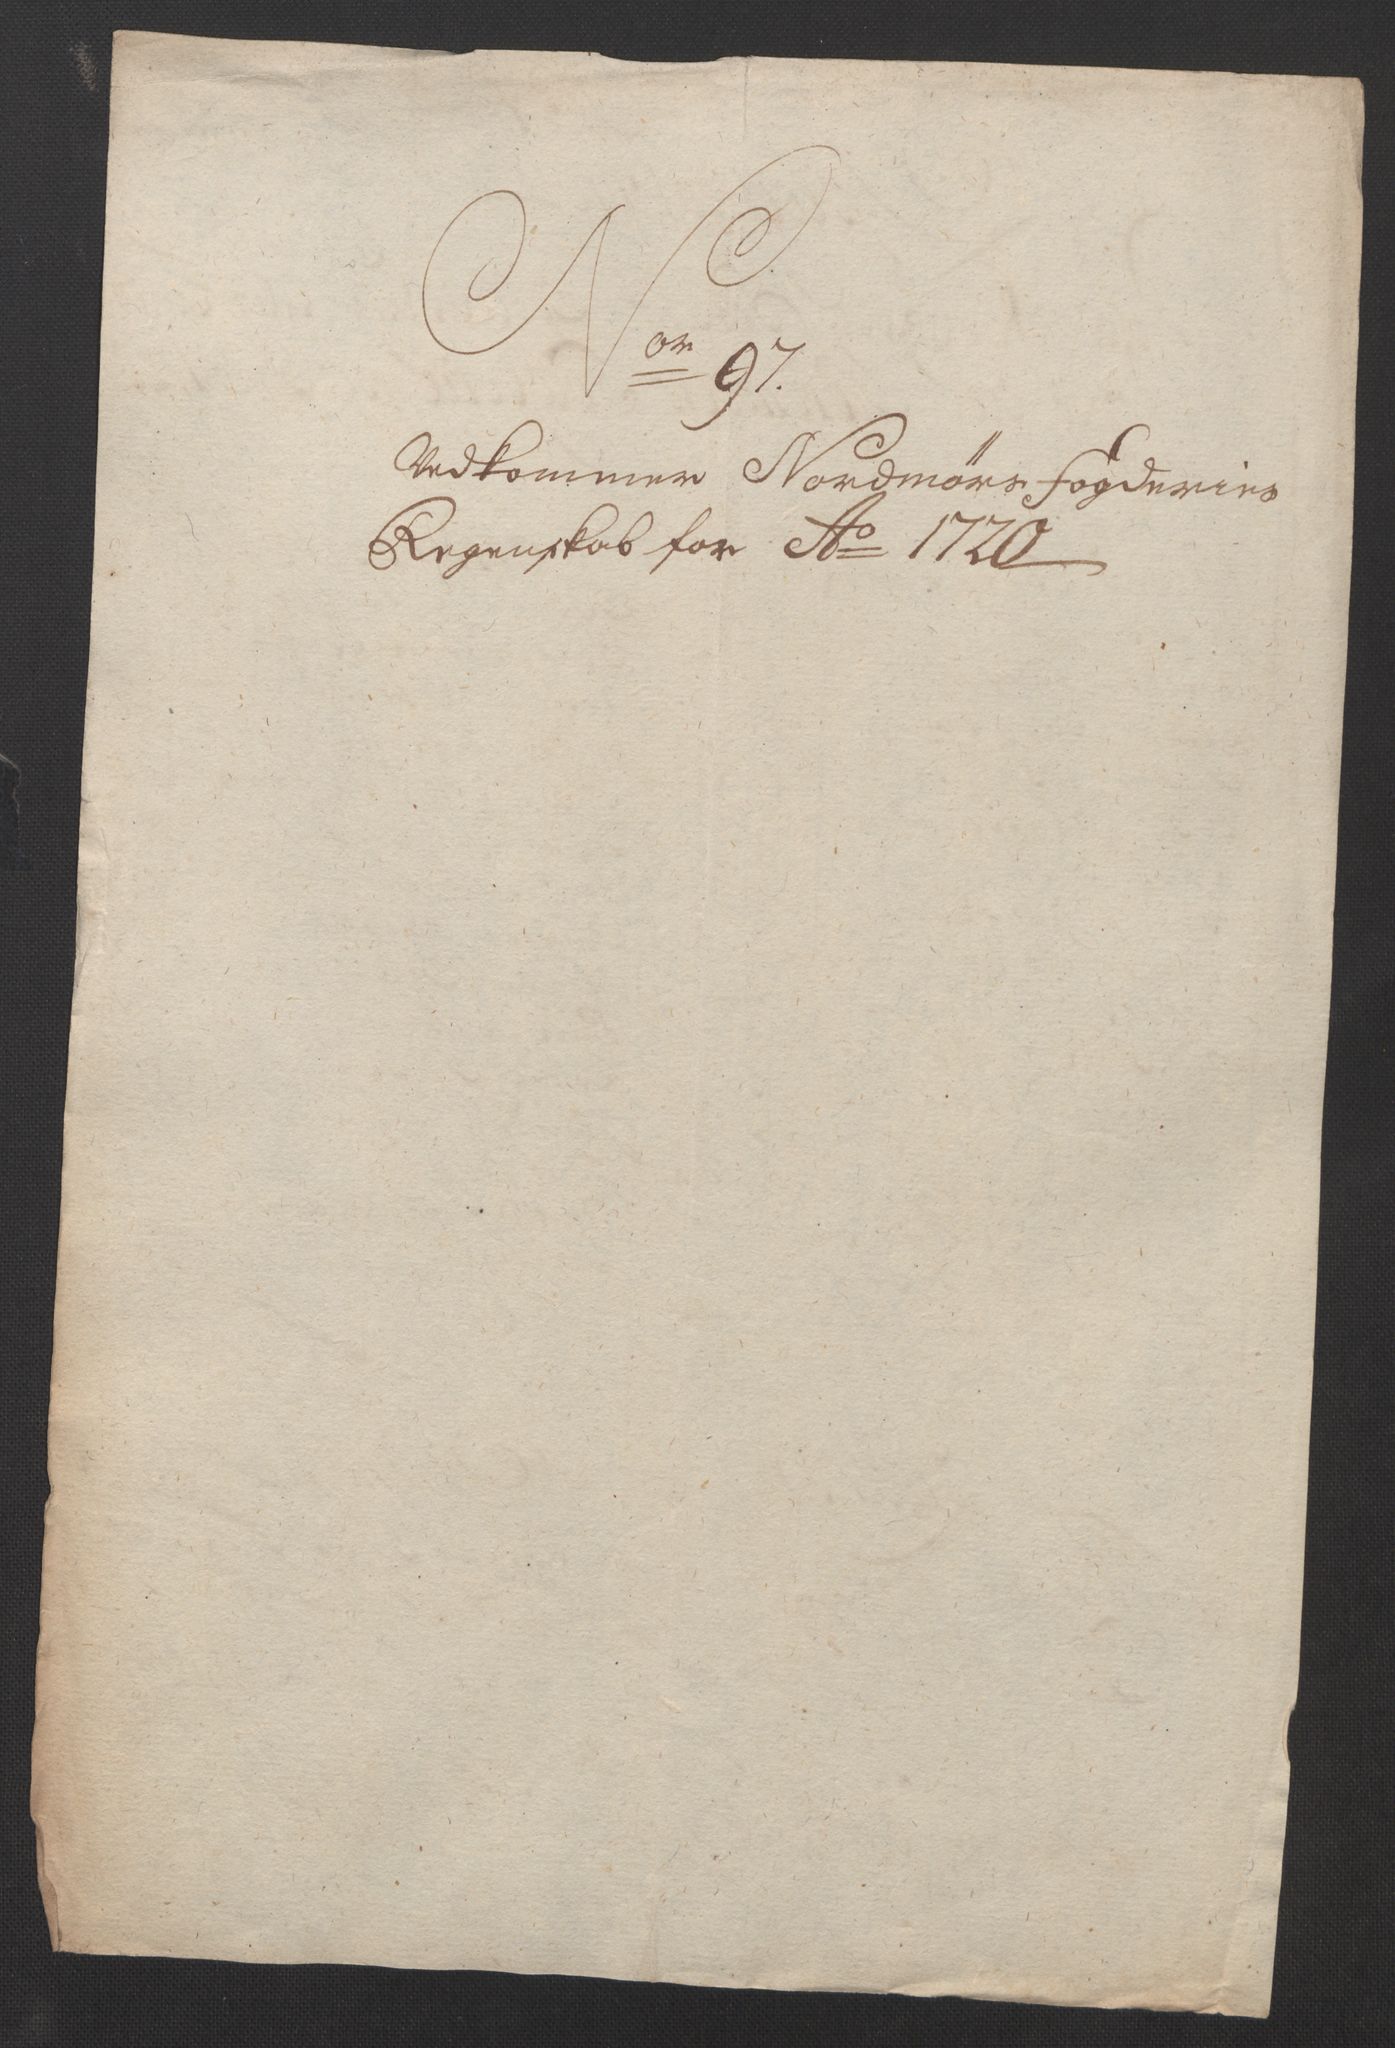 Nor 97.
Vedkommer Nordmörs fogderies
Regenskab for Ao 1720